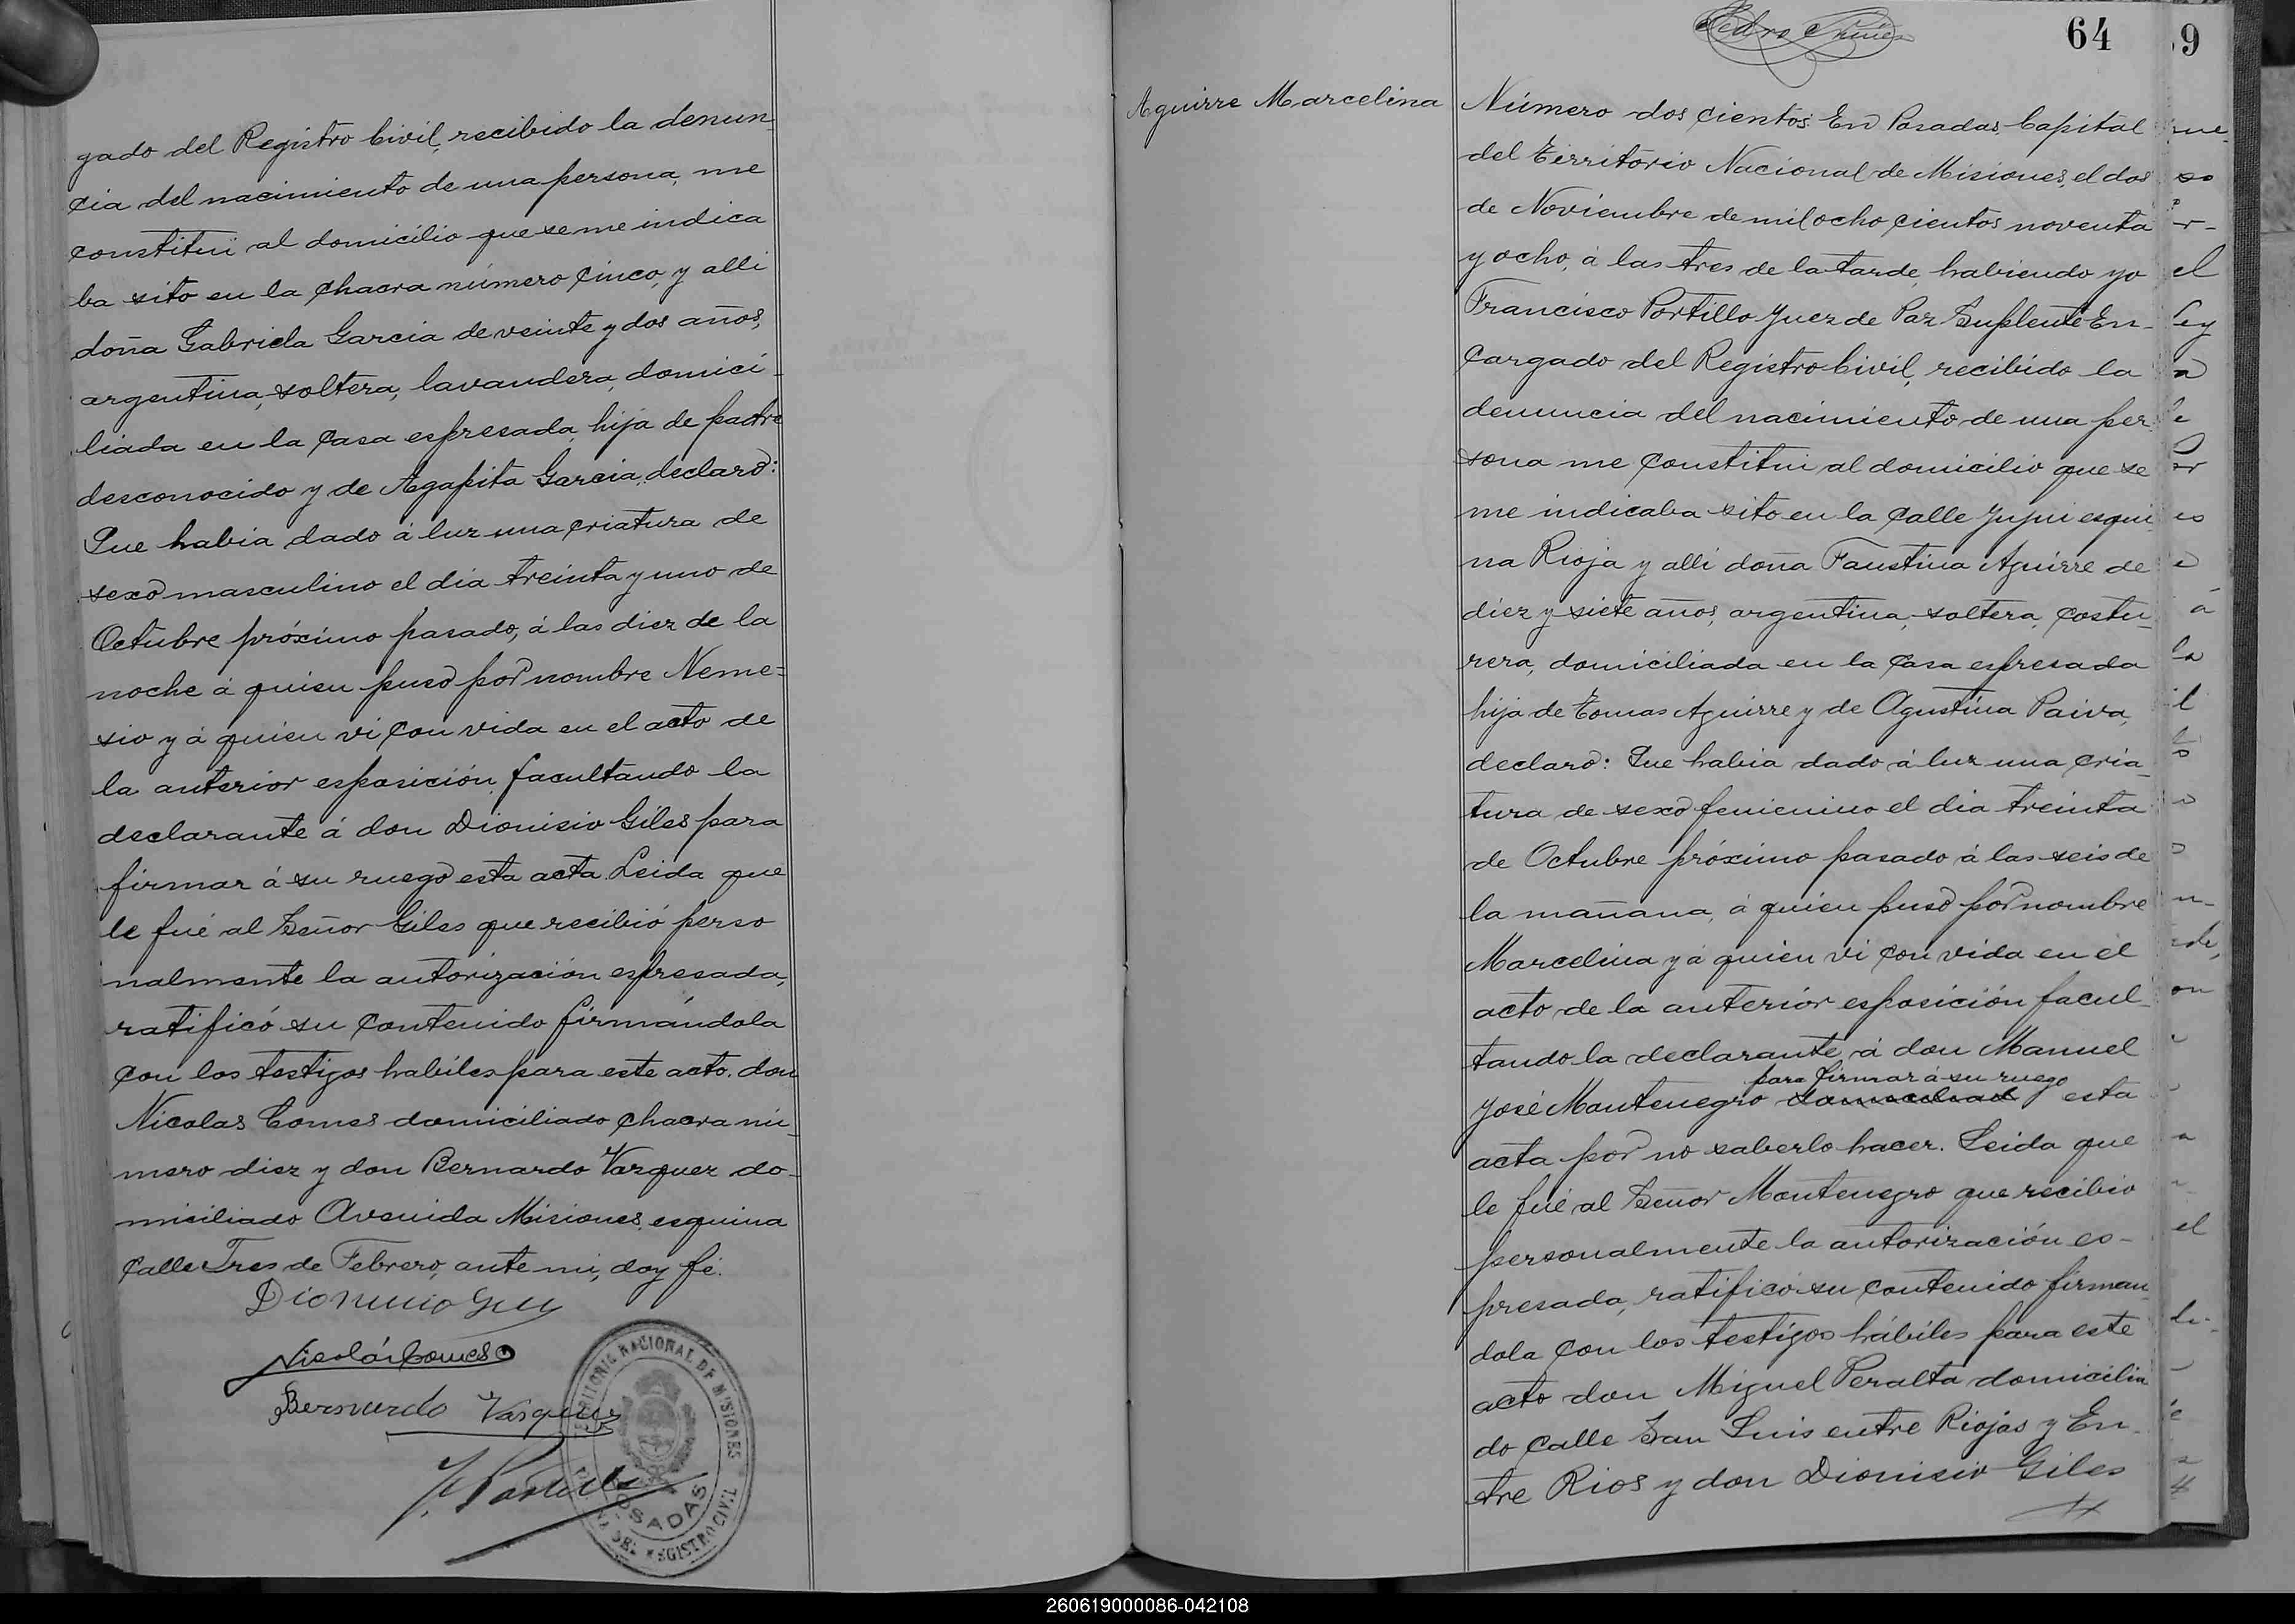 gado del Registro Civil, recibido la denun-
cia del nacimiento de una persona, me
constitui al domicilio que se me indica
ba sito en la chacra número cinco, y alli
doña Gabriela Garcia de veinte y dos años,
argentina, soltera, lavandera, domici-
liada en la casa espresada, hija de padre
desconocido y de Agapita Garcia, declaró:
Que habia dado á luz una criatura de
sexo masculino el dia treinta y uno de
Octubre próximo pasado, á las diez de la
noche á quien puso por nombre Neme=
sio y á quien vi con vida en el acto de
la anterior esposición, facultando la
declarante á don Dionisio Giles para
firmar á su ruego esta acta. Leida que
le fué al Señor Giles que recibió perso
nalmente la autorización espresada,
ratificó su contenido firmándola
con los testigos habiles para este acto. don
Nicolas Comes domiciliado chacra nú-
mero diez y don Bernardo Vasquez do-
miciliado Avenida Misiones, esquina
Calle Tres de Febrero, ante mi, doy fé.
Dionicio
Nicolás Comes
Bernardo Vasquez
F. Portillo
TERRITORIO NACIONAL DE MISIONES
POSADAS
DEL REGISTRO CIVIL
Pedro
64
9
Aguirre Marcelina
Número dos cientos. En Posadas, Capital
del Territorio Nacional de Misiones, el dos
de Noviembre de mil ocho cientos noventa
y ocho, á las tres de la tarde, habiendo yo
Francisco Portillo Juez de Paz Suplente En-
cargado del Registro Civil, recibido la
denuncia del nacimiento de una per
sona me constitui al domicilio que se
me indicaba sito en la calle Jujui esqui
na Rioja y alli doña Faustina Aguirre de
diez y siete años, argentina, soltera, costu-
rera, domiciliada en la casa espresada
hija de Tomas Aguirre y de Agustina Paiva,
declaró: Que habia dado á luz una cria-
tura de sexo femenino el dia treinta
de Octubre próximo pasado á las seis de
la mañana, á quien puso por nombre
Marcelina y á quien vi con vida en el
acto de la anterior esposición facul-
tando la declarante, á don Manuel
para firmar á su ruego
José Montenegro domiciliad esta
acta por no saberlo hacer. Leida que
le fué al Señor Montenegro que recibió
personalmente la autorización es-
presada, ratificó su contenido firman
dola con los testigos hábiles para este
acto don Miguel Peralta domicilia
do calle San Luis entre Riojas y En-
tre Rios y don Dionisio Giles
260619000086-042108